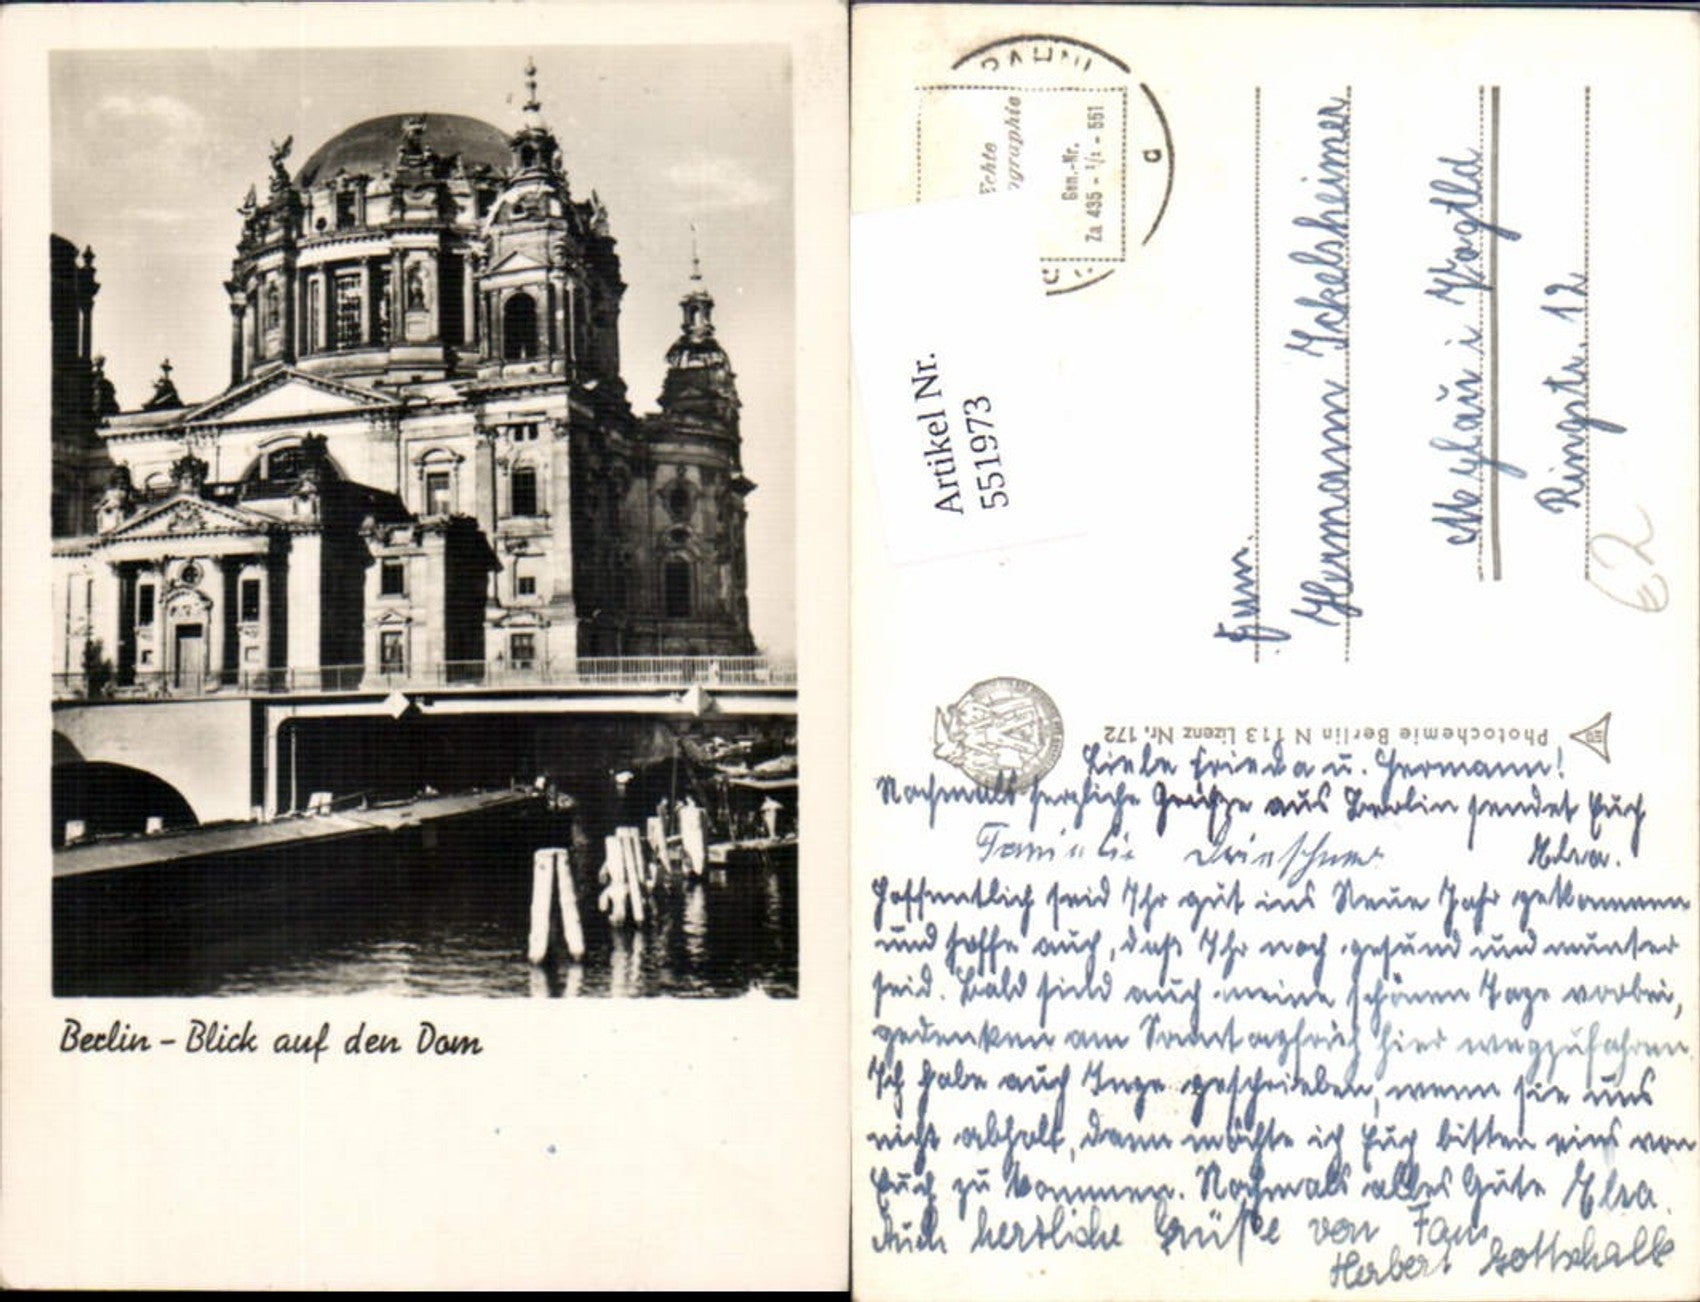 Berlin - Blick auf den Dom
Echte
Gen.-Nr.
Za 435 - 1/1 - 551
a
Artikel Nr.
551973
Hermann Ickelsheimer
Mehlau i Vogtld
Ringstr. 12
€2
Photochemie Berlin N 113 Lizenz Nr. 172
Liebe Frieda u. Hermann!
Nochmals herzliche Grüße aus Berlin sendet Euch
Familie Elsa.
Hoffentlich seid Ihr gut ins Neue Jahr gekommen
und hoffe auch, daß Ihr noch gesund und munter
seid. Bald sind auch meine schönen Tage vorbei,
gedenken am Sonntagfrüh hier wegzufahren.
Ich habe auch Inge geschrieben, wenn sie uns
nicht abholt, dann möchte ich Euch bitten eins von
Euch zu kommen. Nochmals alles Gute Elsa.
Auch herzliche Grüße von Fam.
Herbert Gottschalk